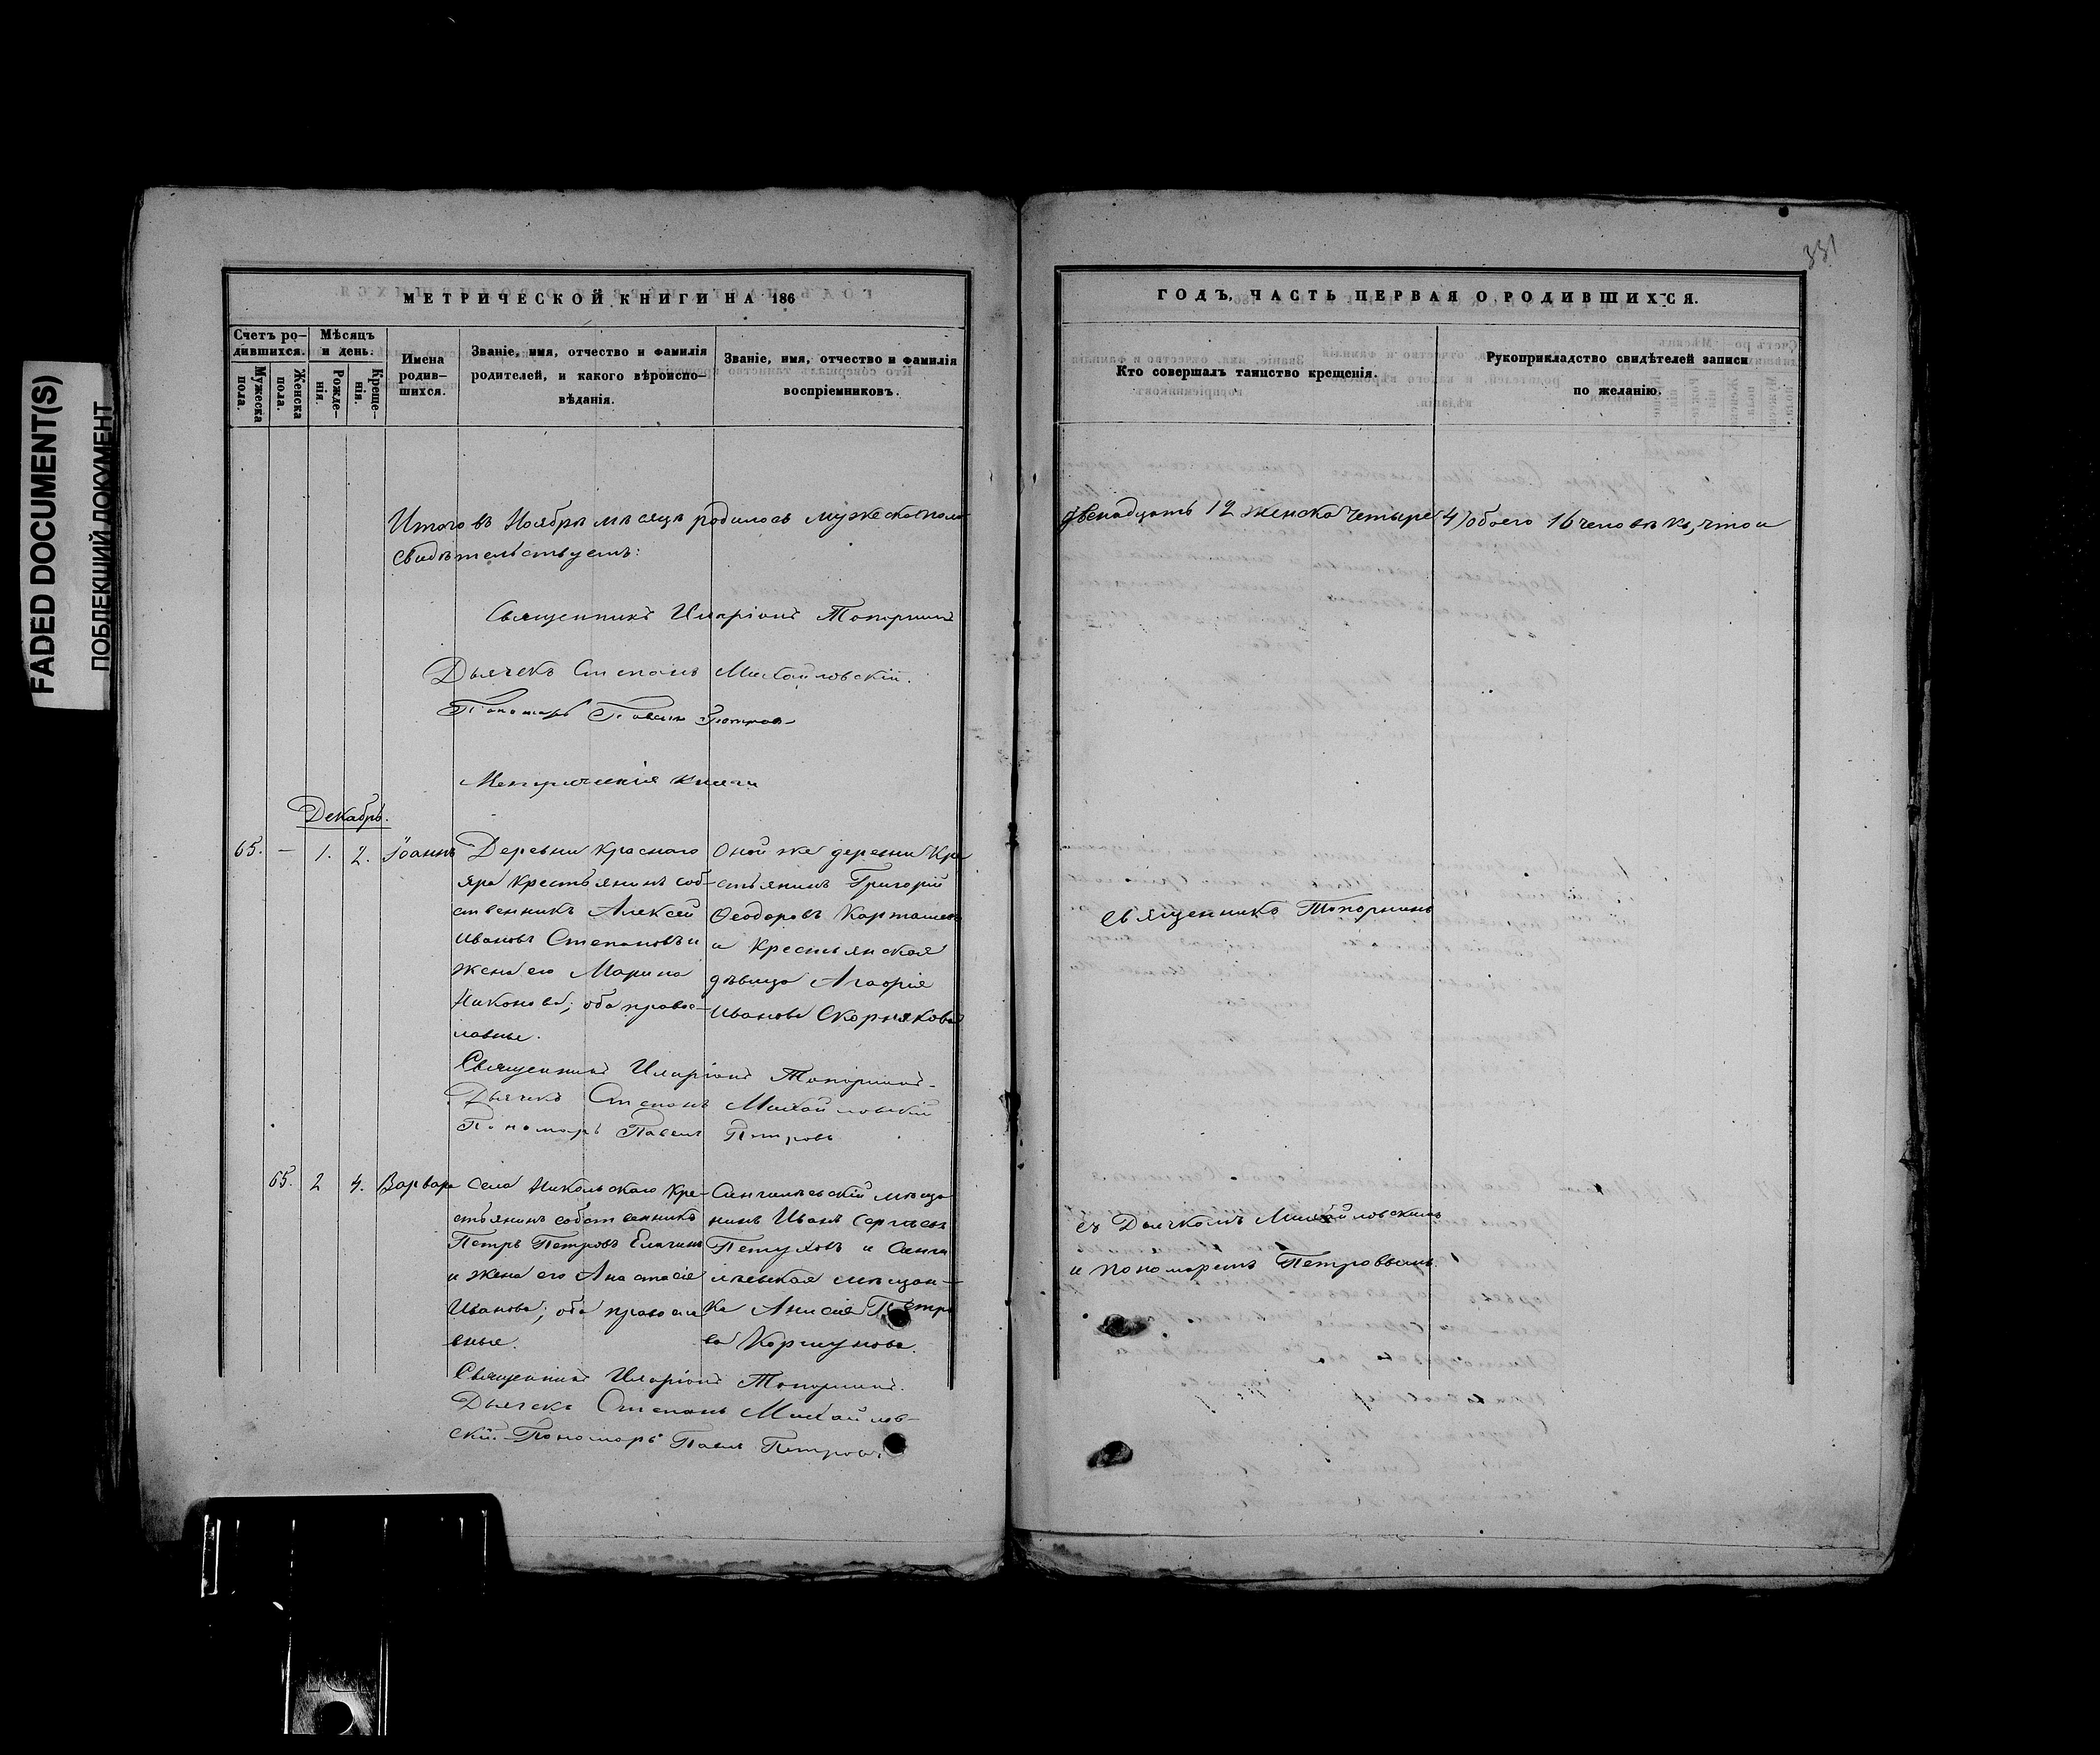 FADED DOCUMENT(S)
ПОБЛЕКШИЙ ДОКУМЕНТ
МЕТРИЧЕСКОЙ КНИГИ НА 186
Счетъ ро-
дившихся.
Мужеска
пола.
Женска
пола.
Мѣсяцъ
и день.
Рожде-
нія.
Креще-
нія.
Имена
родив-
шихся.
Званіе, имя, отчество и фамилія
родителей, и какого вѣроиспо-
вѣданія.
Званіе, имя, отчество и фамилія
воспріемниковъ.
Итого въ Ноябрѣ мѣсяцѣ родилось мужеска пола
свидѣтельствуемъ:
Священникъ Иларіонъ Топорнинъ
Дьячекъ Степанъ Михайловскій.
Пономарь Павелъ Петровъ
книги
Декабрь.
65. — 1. 2. Іоаннъ
Деревни Краснаго
яра крестьянинъ соб-
ственникъ Алексей
Ивановъ Степановъ и
жена его Марина
Никонова; оба правос-
лавные.
Оной же деревни Кре
стьянинъ Григорій
Ѳеодоровъ Карташевъ
и крестьянская
дѣвица Агафія
Иванова Скорнякова
Священникъ Иларіонъ Топорнинъ.
Дьячекъ Степанъ Михайловскій
Пономарь Павелъ Петровъ
65. 2 4. Варвара
Села Никольскаго Кре-
стьянинъ собственникъ
Петръ Петровъ Елагинъ
и жена его Анастасія
Иванова; оба правосла
вные.
Сенгилѣевскій мѣща
нинъ Иванъ Сергѣевъ
Петуховъ и Сенги
лѣевская мѣщан-
ка Анисія Петро
ва Коршунова.
Священникъ Иларіонъ Топорнинъ.
Дьячекъ Степанъ Михайлов-
скій. Пономарь Павелъ Петровъ.
331
ГОДЪ, ЧАСТЬ ПЕРВАЯ О РОДИВШИХСЯ.
Кто совершалъ таинство крещенія.
Рукоприкладство свидѣтелей записи
по желанію.
двенадцать 12 женска четыре (4) обоего 16 человѣкъ, что и
священникъ Топорнинъ
съ Дьячкомъ Михайловскимъ
и пономаремъ Петровымъ.